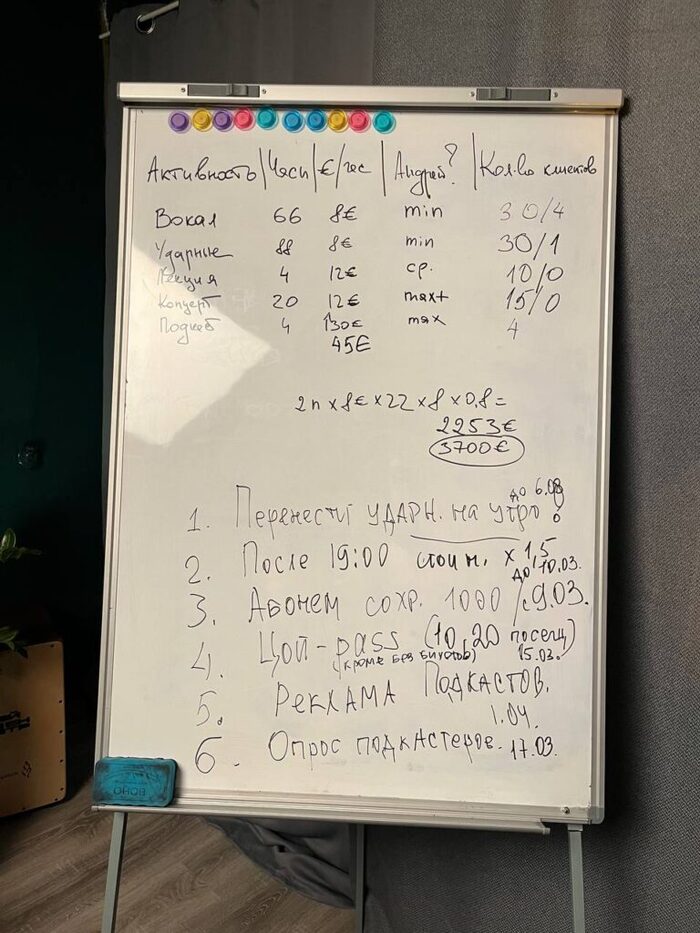 Активность | Часы | €/час | Андрей? | Кол-во клиентов
Вокал 66 8€ min 30/4
Ударные 88 8€ min 30/1
Лекция 4 12€ ср. 10/0
Концерт 20 12€ max+ 15/0
Подкаст 4 130€ max 4
45€
2п x 8€ x 22 x 8 x 0,8 =
2253€
3700€
до 6.03
1. Перенести УДАРН. на утро!
2. После 19:00 стоим. x 1,5
до 10.03.
3. Абонем сохр. 1000 / с 9.03.
4. Цой-pass (10, 20 посещ)
(кроме без билетов) 15.03.
5. Реклама Подкастов.
1.04.
6. Опрос подкастеров. 17.03.
SOHO